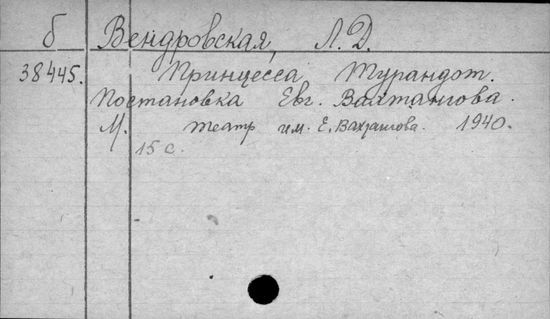 б Вендровская, Л.Д.
38445. Принцесса Турандот.
Постановка Евг. Вахтангова.
М. театр им. Е. Вахтангова. 1940.
15 с.